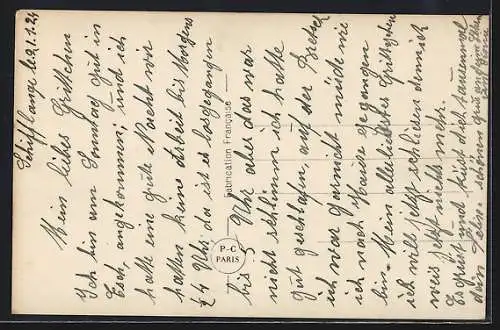 Schifflange le 21.1.24
Mein liebes Gritchen
Ich bin am Sonntag gut in
Esch, angekommen, und ich
hatte eine gute Nacht wir
hatten keine Arbeit bis Morgens
4 Uhr da ist es losgegangen
bis 5 Uhr aber das war
nicht schlimm ich hatte
gut geschlafen auf der
ich war garnicht müde wie
ich nach Hause gegangen
bin - Mein allerliebstes
ich will jetzt schliesen den ich
weis jetzt nichts mehr.
Es grüst und küsst dich tausenmal
dein
schönen grus
Fabrication Française
P-C
PARIS